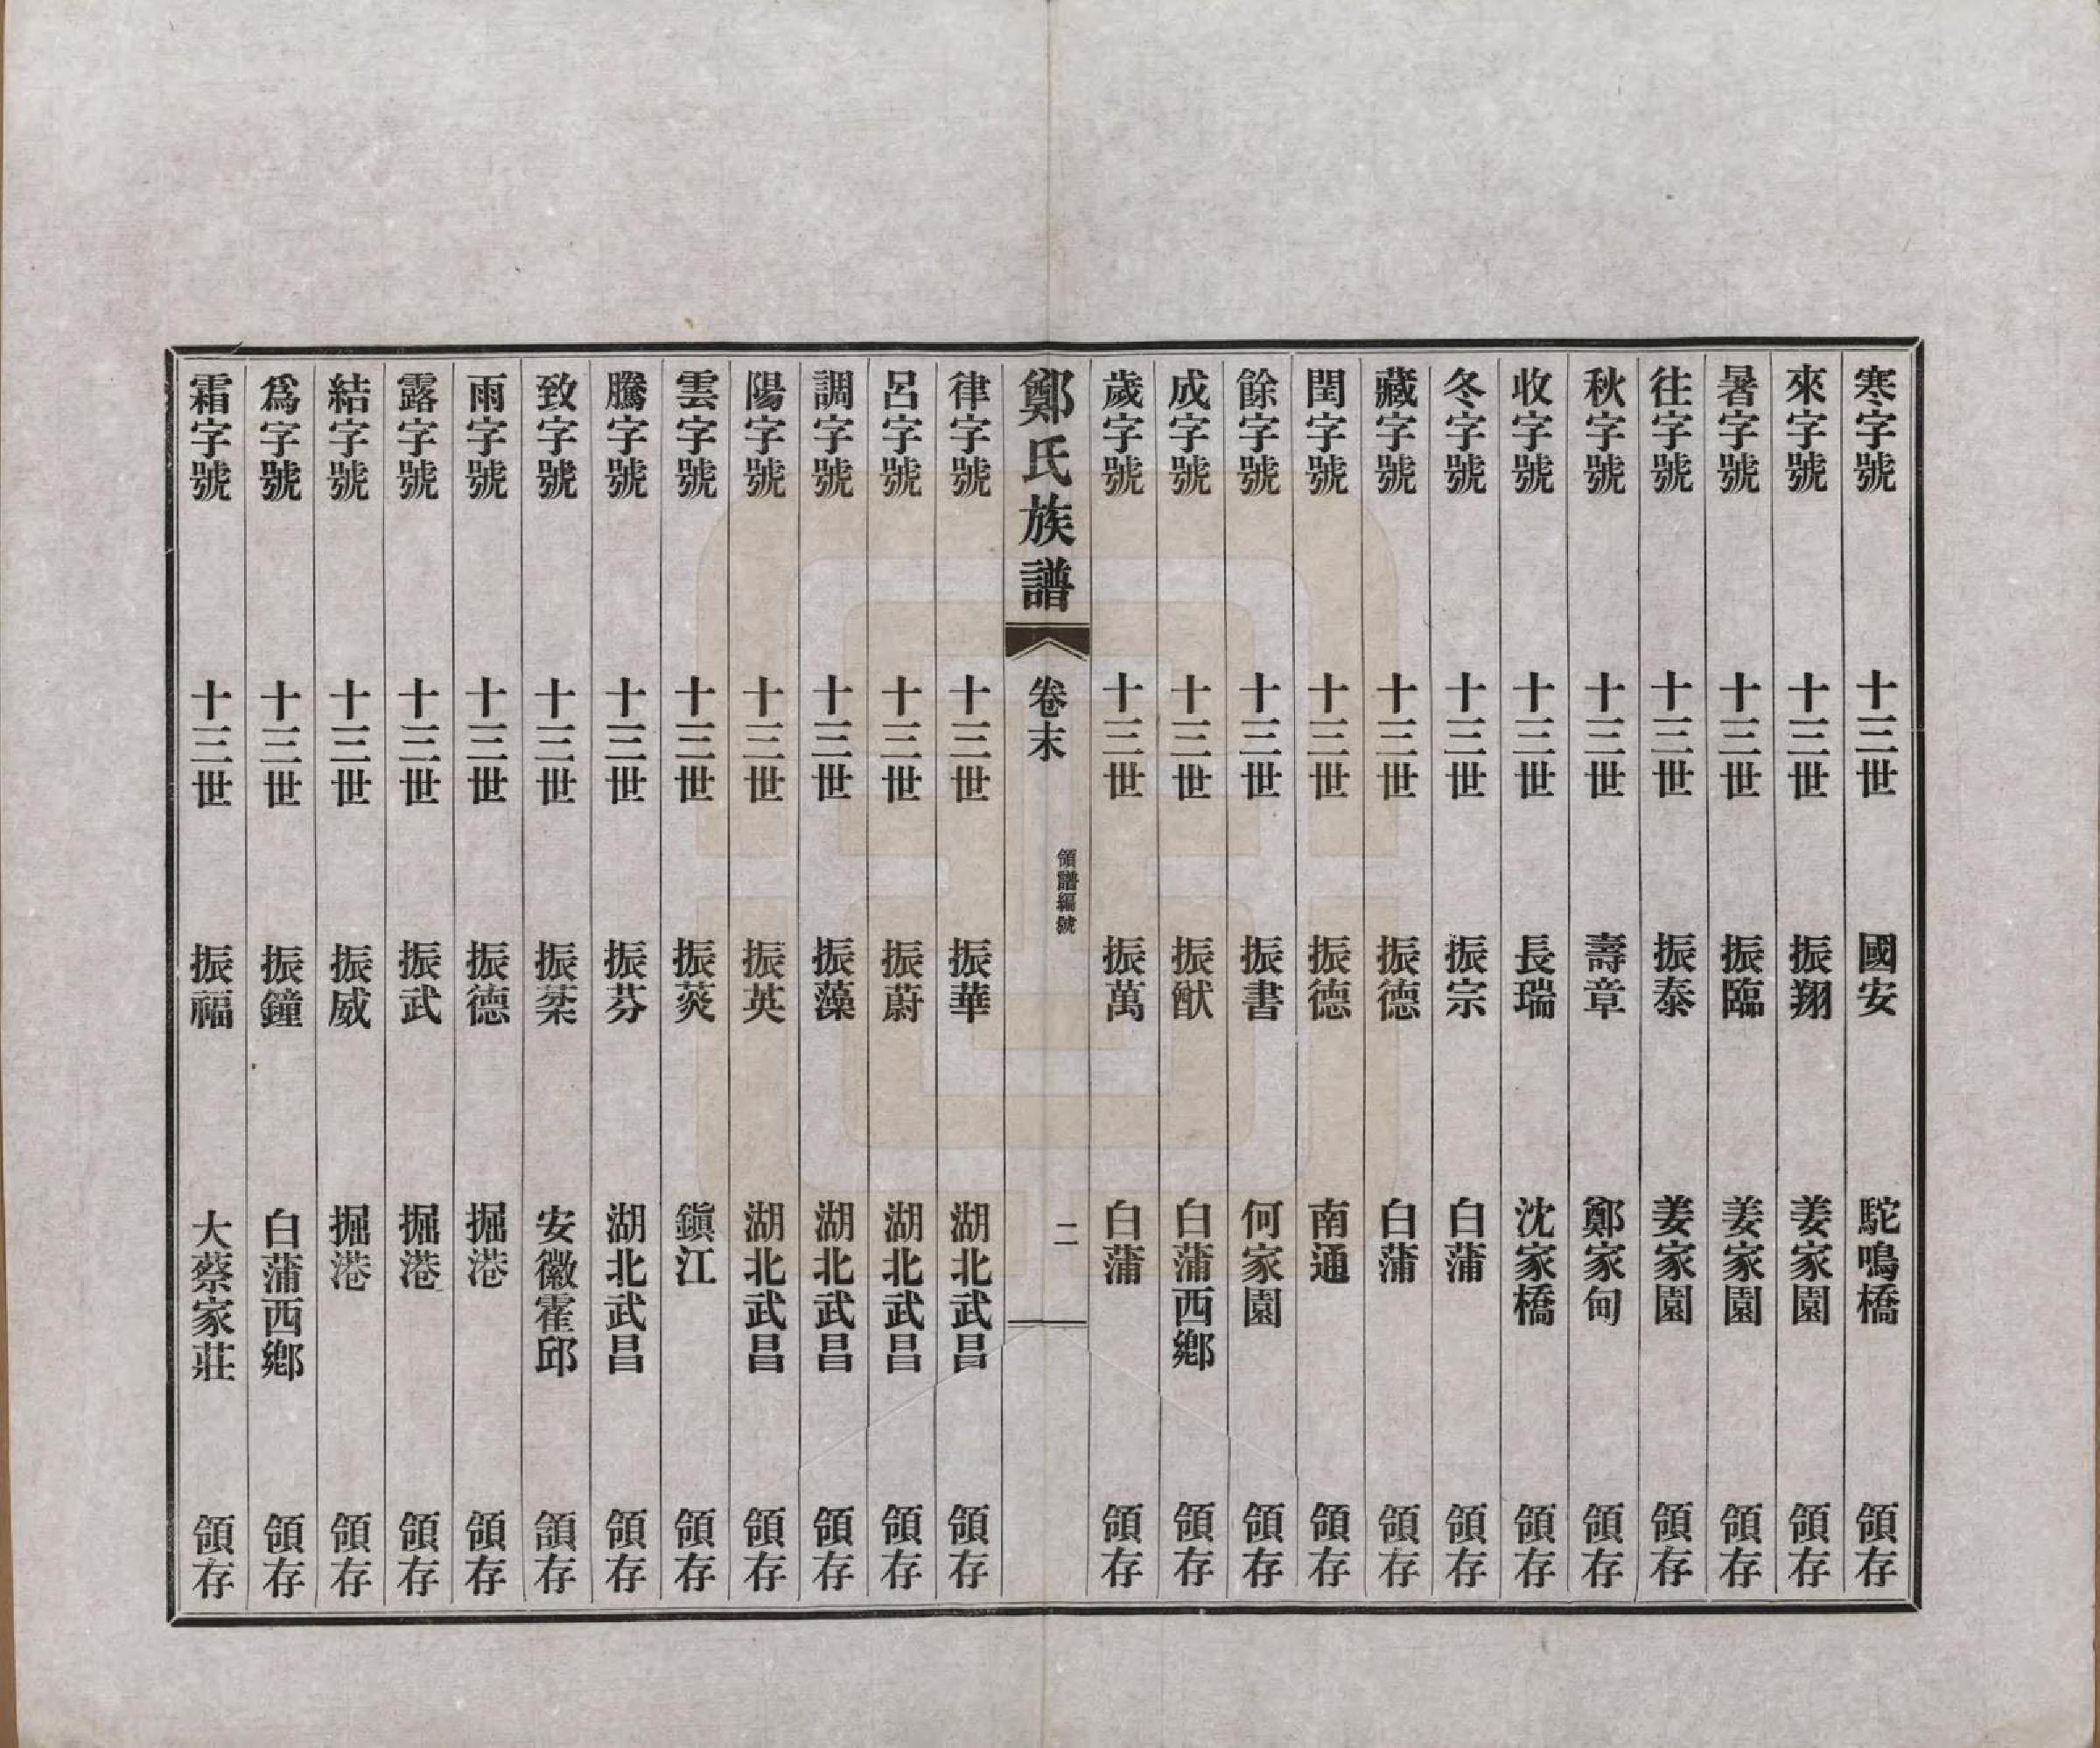 寒字號 十三世 國安 駝鳴橋 領存
來字號 十三世 振翔 姜家園 領存
暑字號 十三世 振臨 姜家園 領存
往字號 十三世 振泰 姜家園 領存
秋字號 十三世 壽章 鄭家甸 領存
收字號 十三世 長瑞 沈家橋 領存
冬字號 十三世 振宗 白蒲 領存
藏字號 十三世 振德 白蒲 領存
閏字號 十三世 振德 南通 領存
餘字號 十三世 振書 何家園 領存
成字號 十三世 振猷 白蒲西鄉 領存
歲字號 十三世 振萬 白蒲 領存
鄭氏族譜 卷末 領譜編號 二
律字號 十三世 振華 湖北武昌 領存
呂字號 十三世 振蔚 湖北武昌 領存
調字號 十三世 振藻 湖北武昌 領存
陽字號 十三世 振英 湖北武昌 領存
雲字號 十三世 振 鎭江 領存
騰字號 十三世 振芬 湖北武昌 領存
致字號 十三世 振 安徽霍邱 領存
雨字號 十三世 振德 掘港 領存
露字號 十三世 振武 掘港 領存
結字號 十三世 振威 掘港 領存
爲字號 十三世 振鐘 白蒲西鄉 領存
霜字號 十三世 振福 大蔡家莊 領存